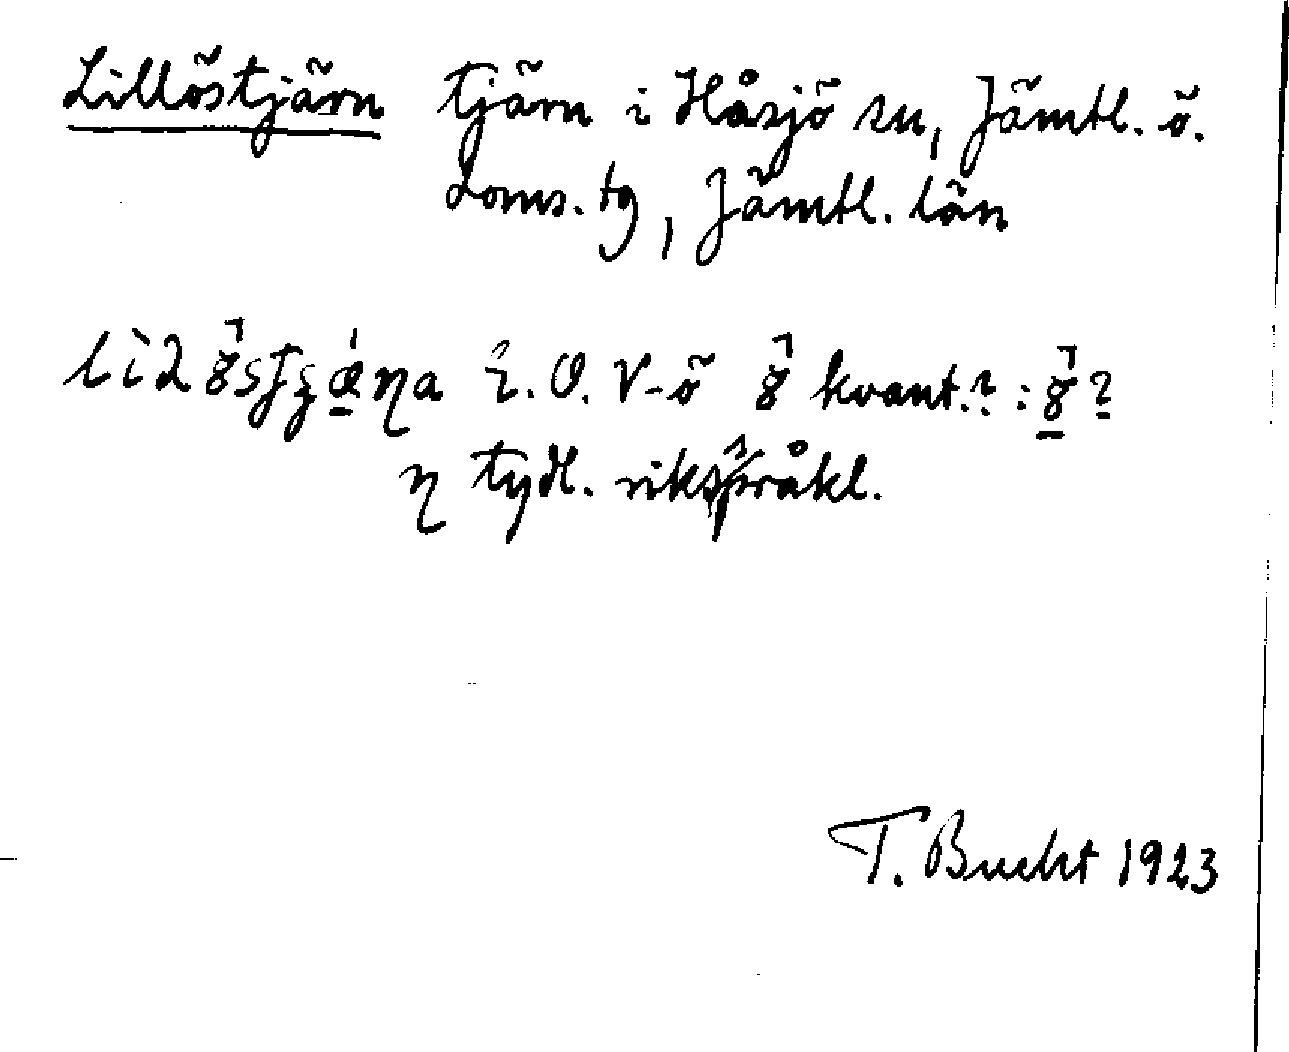 Lillöstjärn tjärn i Håsjö sn, Jämtl. ö.
doms. tg, Jämtl. län
i. O. V-ö kvant.? : ?
η tydl. rikspråkl.
T. Bucht 1923